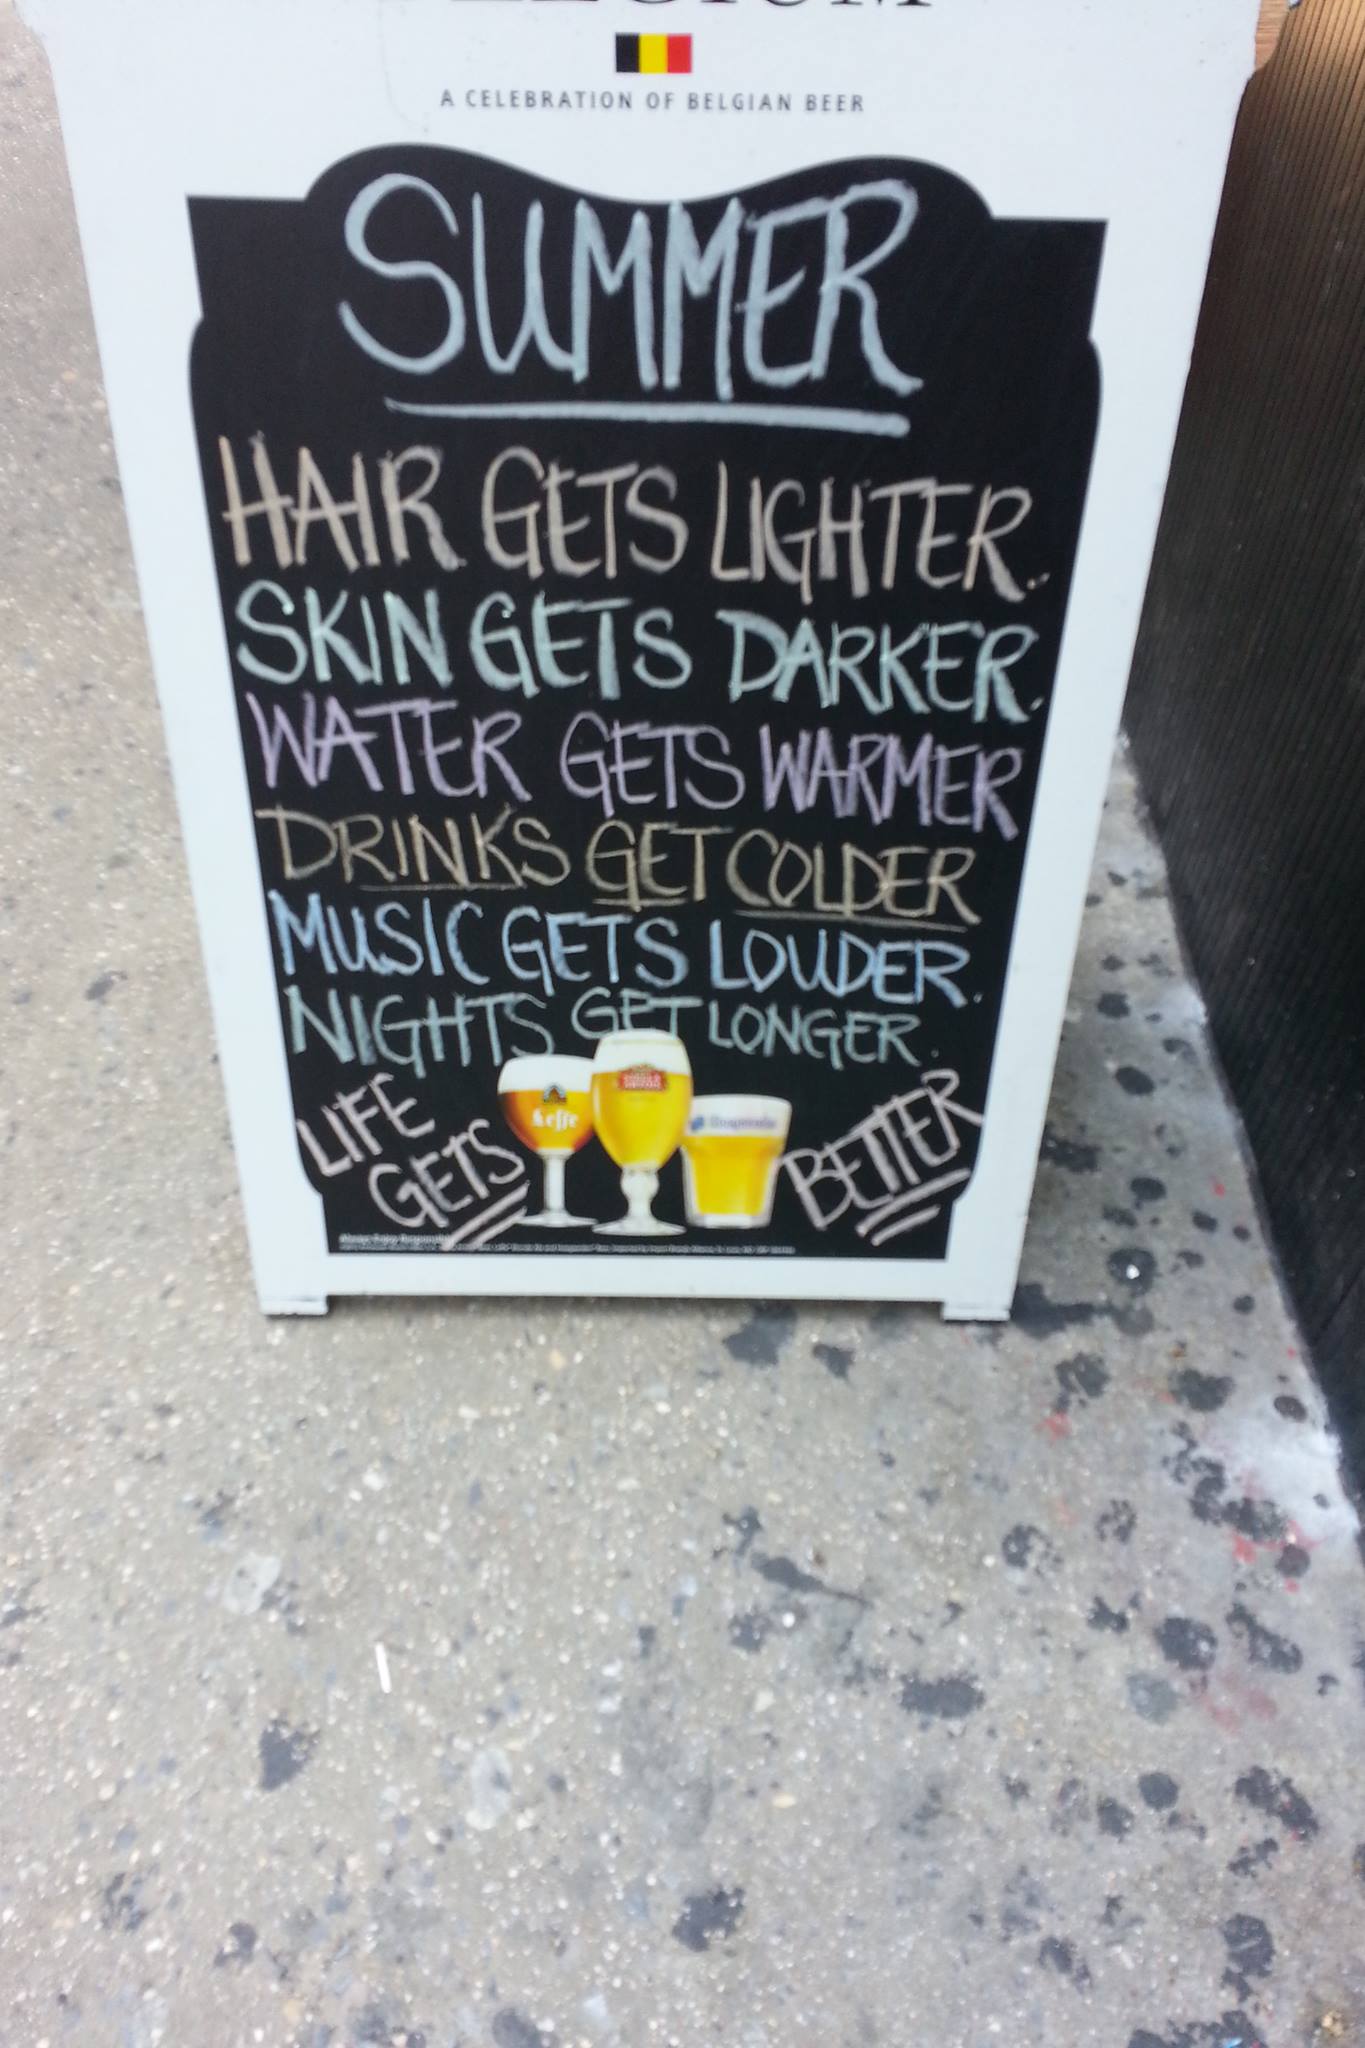 A CELEBRATION OF BELGIAN BEER
SUMMER
HAIR GETS LIGHTER.
SKIN GETS DARKER.
WATER GETS WARMER
DRINKS GET COLDER
MUSIC GETS LOUDER.
NIGHTS GET LONGER.
LIFE
GETS
BETTER
Leffe
Hoegaarden
Always Enjoy Responsibly